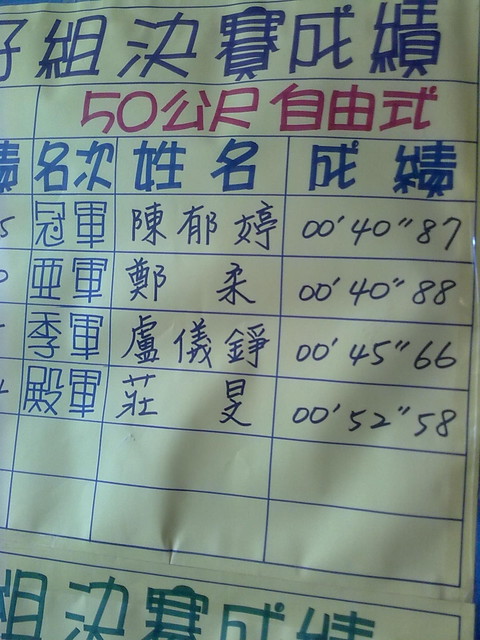 組決賽成績
50公尺自由式
績 名次 姓名 成績
5 冠軍 陳郁婷 00'40"87
0 亞軍 鄭柔 00'40"88
季軍 盧儀錚 00'45"66
殿軍 莊旻 00'52"58
組決賽成績